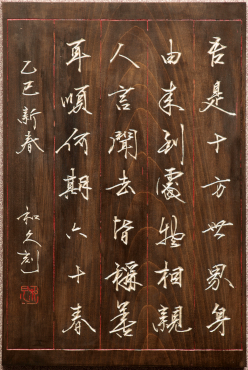 吾是十方世界身
由来到處物相親
人言聞去皆稱善
耳順何期六十春
乙巳新春 和久刻